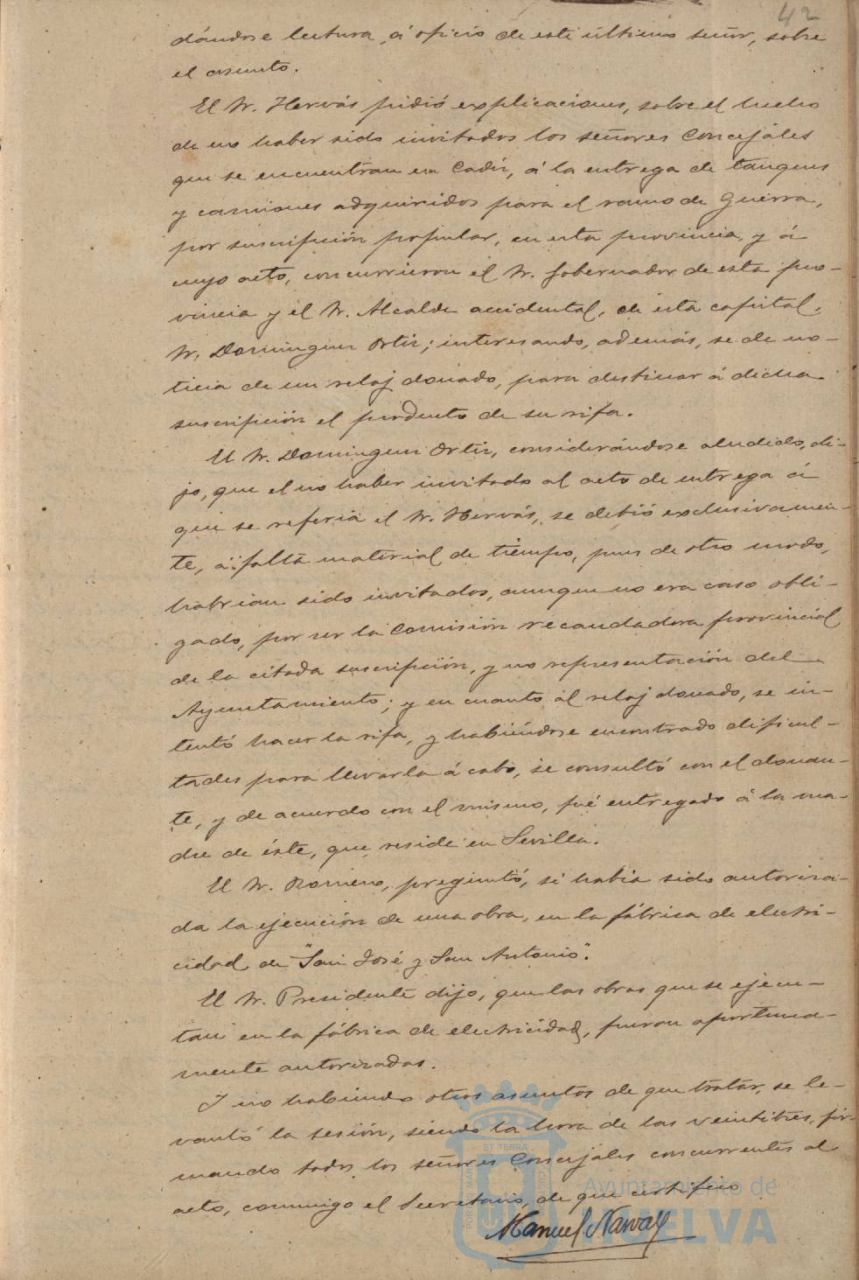 42
dándose lectura, á oficio de este último señor, sobre
el asunto.
El Sr. Hervás pidió explicaciones, sobre el hecho
de no haber sido invitados los señores Concejales
que se encuentran en Cadiz, á la entrega de tanques
y camiones adquiridos para el ramo de Guerra,
por suscripción popular, en esta provincia, y á
cuyo acto, concurrieron el Sr. Gobernador de esta pro-
vincia y el Sr. Alcalde accidental, de esta capital,
Sr. Dominguez Ortiz; interesando, además, se dé no-
ticia de un reloj donado, para destinar á dicha
suscripción el producto de su rifa.
El Sr. Dominguez Ortiz, considerándose aludido, di-
jo, que el no haber invitado al acto de entrega á
que se referia el Sr. Hervás, se debió exclusivamen-
te, á falta material de tiempo, pues de otro modo,
habrian sido invitados, aunque no era caso obli-
gado, por ser la Comisión recaudadora provincial
de la citada suscripción, y no representación del
Ayuntamiento; y en cuanto al reloj donado, se in-
tentó hacer la rifa, y habiéndose encontrado dificul-
tades para llevarla á cabo, se consultó con el donan-
te, y de acuerdo con el mismo, fué entregado á la ma-
dre de éste, que reside en Sevilla.
El Sr. Romero, preguntó, si habia sido autoriza-
da la ejecución de una obra, en la fábrica de electri-
cidad de "San José y San Antonio".
El Sr. Presidente dijo, que las obras que se ejecu-
tan en la fábrica de electricidad, fueron oportuna-
mente autorizadas.
Y no habiendo otros asuntos de que tratar, se le-
vantó la sesión, siendo la hora de las veintitres, fir-
mando todos los señores Concejales concurrentes al
acto, conmigo el Secretario, de que certifico
Manuel Narváez
Ayuntamiento de
HUELVA